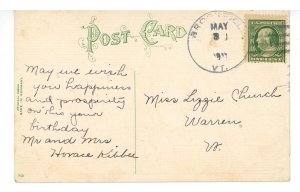 POST CARD
MAY
31
VT.
May we wish
you happiness
and prosperity
on this your
birthday
Mr and Mrs
Horace Kibbee
Miss Lizzie Church
Warren
Vt.